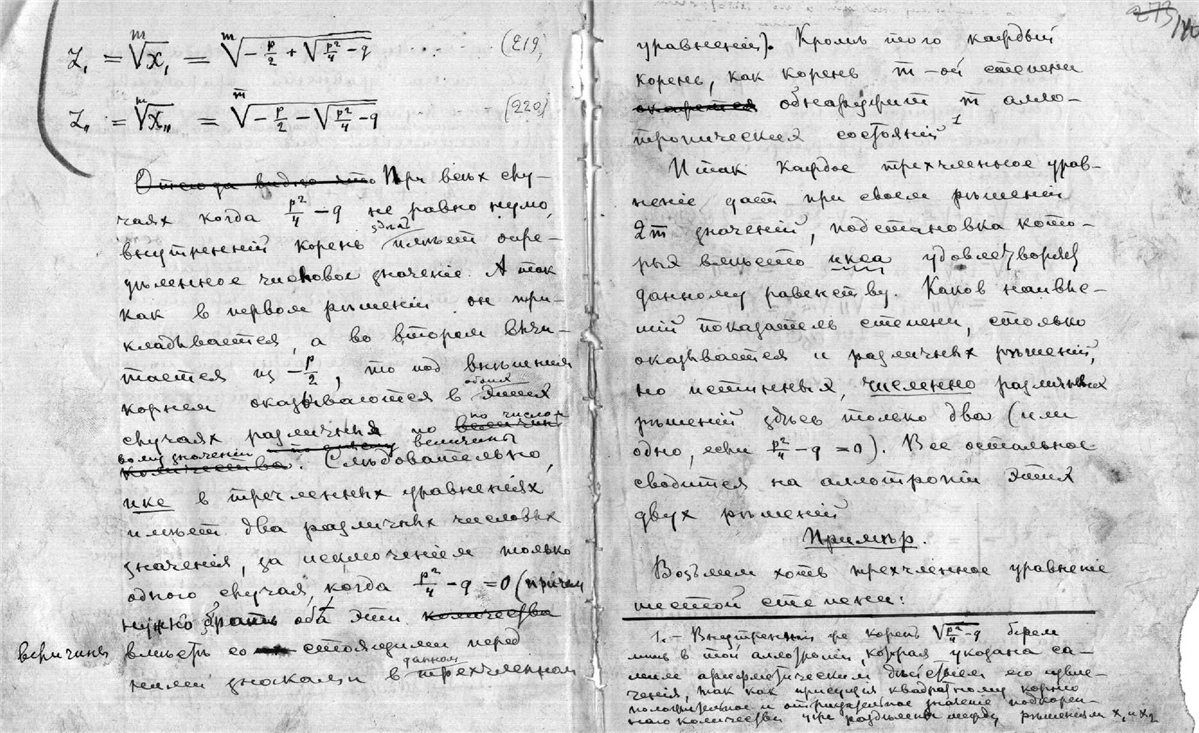 z₁ = ᵐ√x₁ = ᵐ√(-p/2 + √(p²/4 - q)) (219)
z₁₁ = ᵐ√x₁₁ = ᵐ√(-p/2 - √(p²/4 - q)) (220)
Отсюда видно что При всѣх слу-
чаях когда p²/4 - q не равно нулю,
внутренній корень имѣет опре-
дѣленное числовое значеніе. А так
как в первом рѣшеніи он при-
кладывается, а во втором вычи-
тается из -p/2, то под внѣшним
корнем оказываются в обоих этих
случаях различныя по число-
вому значенію величины
количества. Слѣдовательно,
икс в трехчленных уравненіях
имѣет два различных числовых
значенія, за исключеніем только
одного случая, когда p²/4 - q = 0 (причем
нужно брать оба эти количества
величины вмѣстѣ со стоящими перед
ними знаками в данном трехчленном
273
уравненіи). Кромѣ того каждый
корень, как корень m-ой степени
окажется обнаружит m алло-
тропических состояній¹
Итак каждое трехчленное урав-
неніе дает при своем рѣшеніи
2m значеній, подстановка кото-
рых вмѣсто икса удовлетворяет
данному равенству. Каков наивыс-
шій показатель степени, столько
оказывается и различных рѣшеній,
но истинных, численно различных
рѣшеній здѣсь только два (или
одно, если p²/4 - q = 0). Все остальное
сводится на аллотропіи этих
двух рѣшеній
Примѣр.
Возьмем хоть трехчленное уравненіе
шестой степени:
1. – Внутренній же корень √(p²/4 - q) берем
лишь в той аллотропіи, которая указана са-
мим арифметическим дѣйствіем его извле-
ченія, так как присущія квадратному корню
положительное и отрицательное значение подкорен-
наго количества уже раздѣлены между рѣшеніями x₁ и x₂